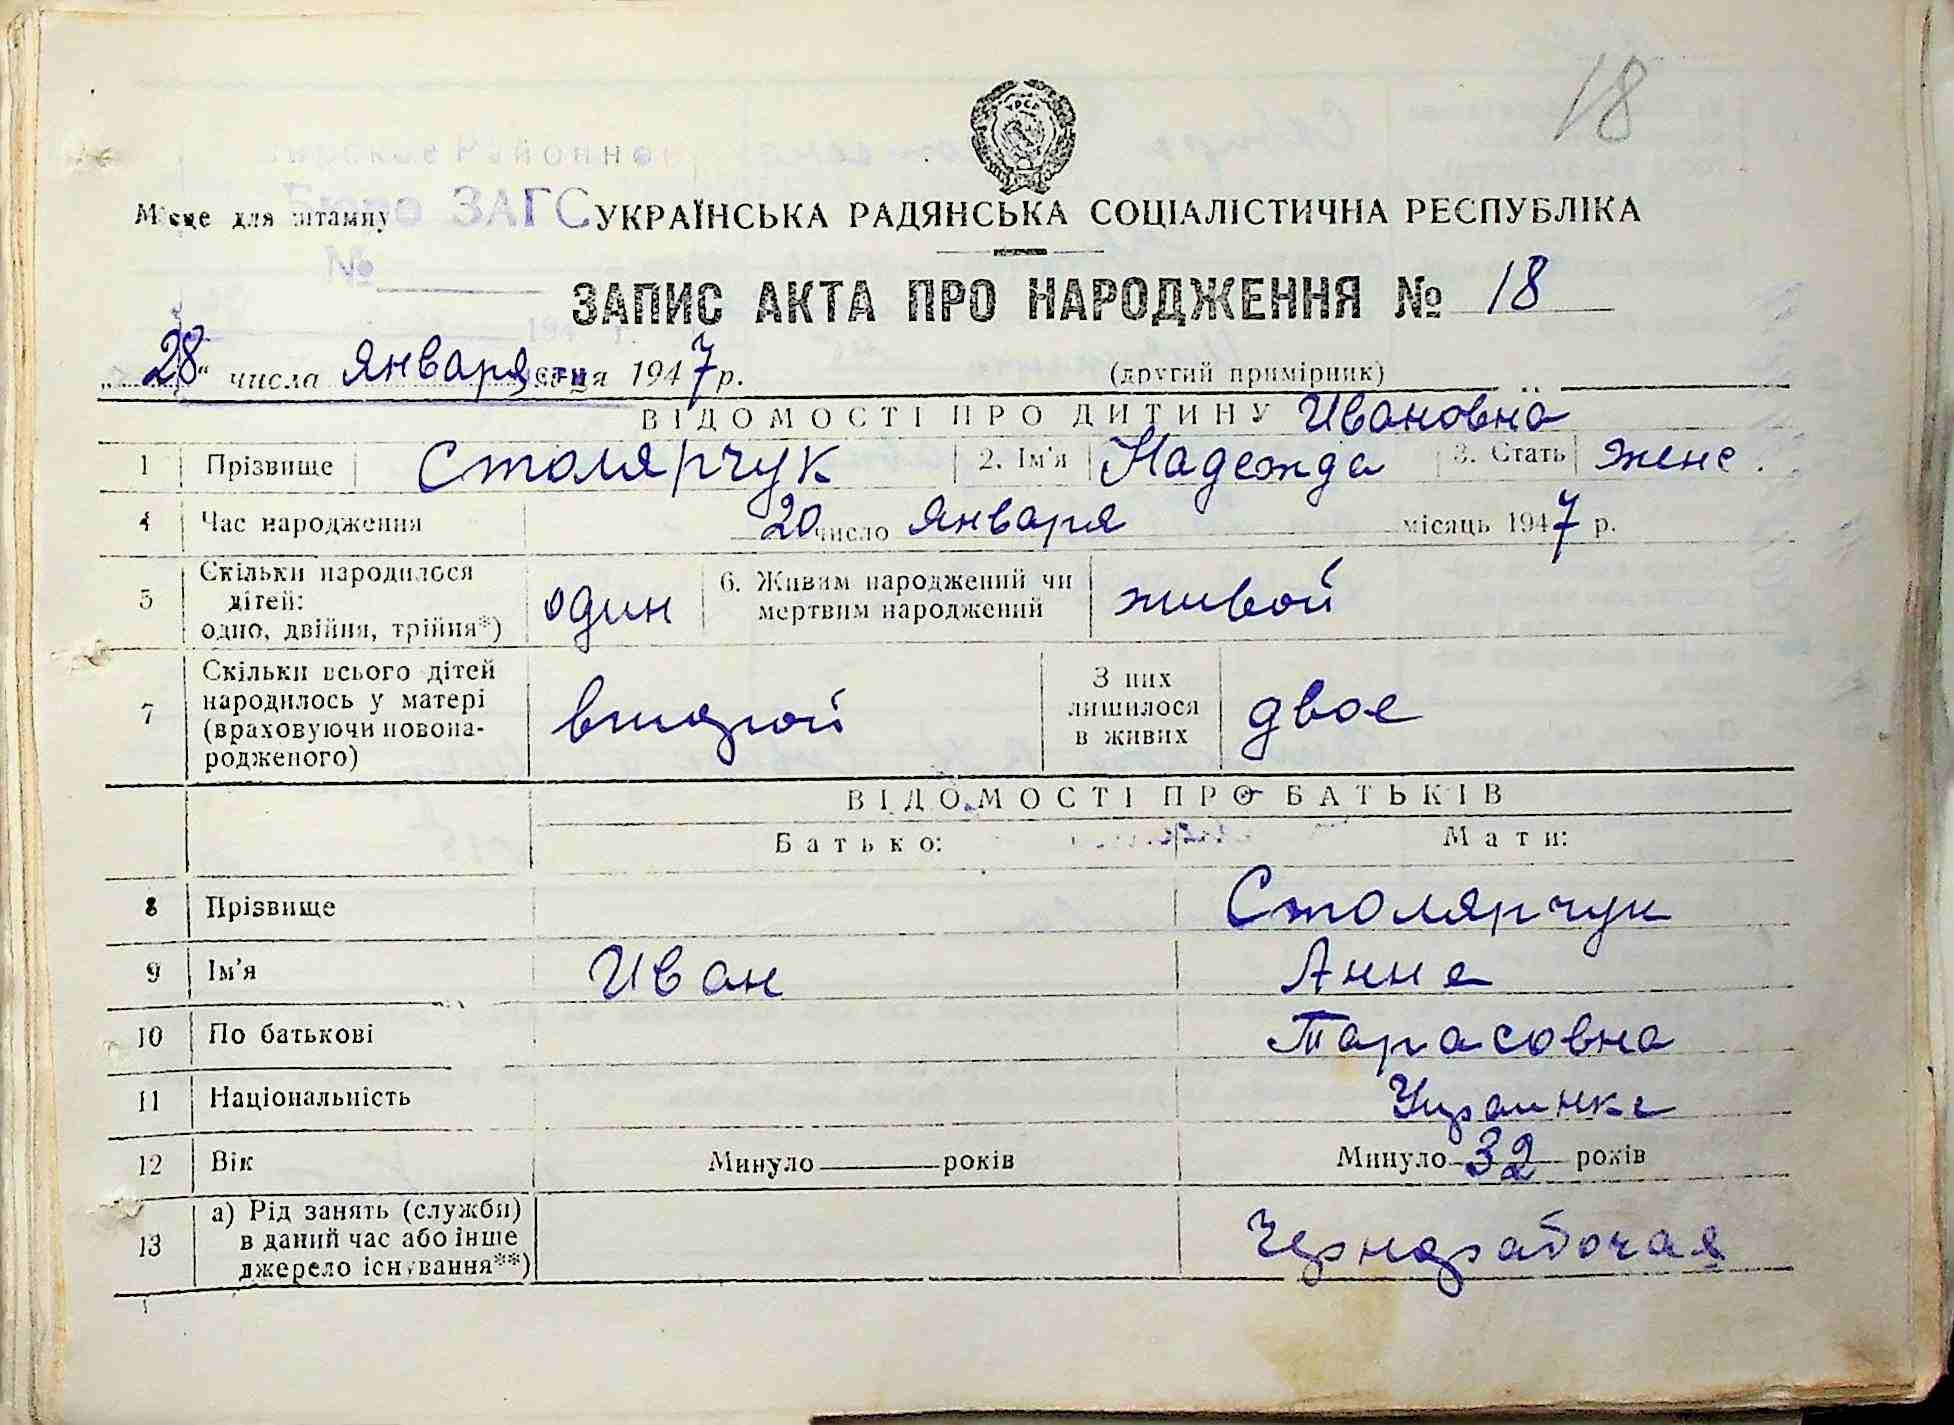 18
УРСР
Районное
Бюро ЗАГС
Місце для штампу
УКРАЇНСЬКА РАДЯНСЬКА СОЦІАЛІСТИЧНА РЕСПУБЛІКА
№
ЗАПИС АКТА ПРО НАРОДЖЕННЯ № 18
„28“ числа января місяця 1947 р.
(другий примірник)
ВІДОМОСТІ ПРО ДИТИНУ Ивановна
1 Прізвище Столярчук 2. Ім'я Надежда 3. Стать женс.
4 Час народження 20 число января місяць 1947 р.
5 Скільки народилося дітей: одно, двійня, трійня*) один 6. Живим народжений чи мертвим народжений живой
7 Скільки всього дітей народилось у матері (враховуючи новонародженого) второй З них лишилося в живих двое
ВІДОМОСТІ ПРО БАТЬКІВ
Батько: Мати:
8 Прізвище Столярчук
9 Ім'я Иван Анна
10 По батькові Тарасовна
11 Національність Украинка
12 Вік Минуло років Минуло 32 років
13 а) Рід занять (служби) в даний час або інше джерело існування**) Чернорабочая